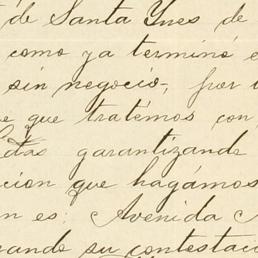 de Santa Ynes de
como ya terminé e
sin negocio, por
e que tratémos con
garantizando
cion que hagámos
n es: Avenida
rando su contestac